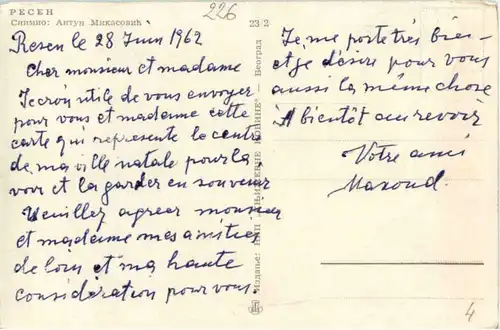 РЕСЕН
Снимио: Антун Микасовић
226
23/2
Resen le 28 Juin 1962
Cher monsieur et madame
Je crois utile de vous envoyer
pour vous et madame cette
carte qui represente le centre
de ma ville natale pour la
voir et la garder en souvenir
Veuillez agreer monsieur
et madame mes amitiés
de loin et ma haute
considération pour vous.
Je me porte très bien
et je désire pour vous
aussi la même chose
A bientôt au revoir
Votre ami
Maxoud.
Београд
Издање:
4